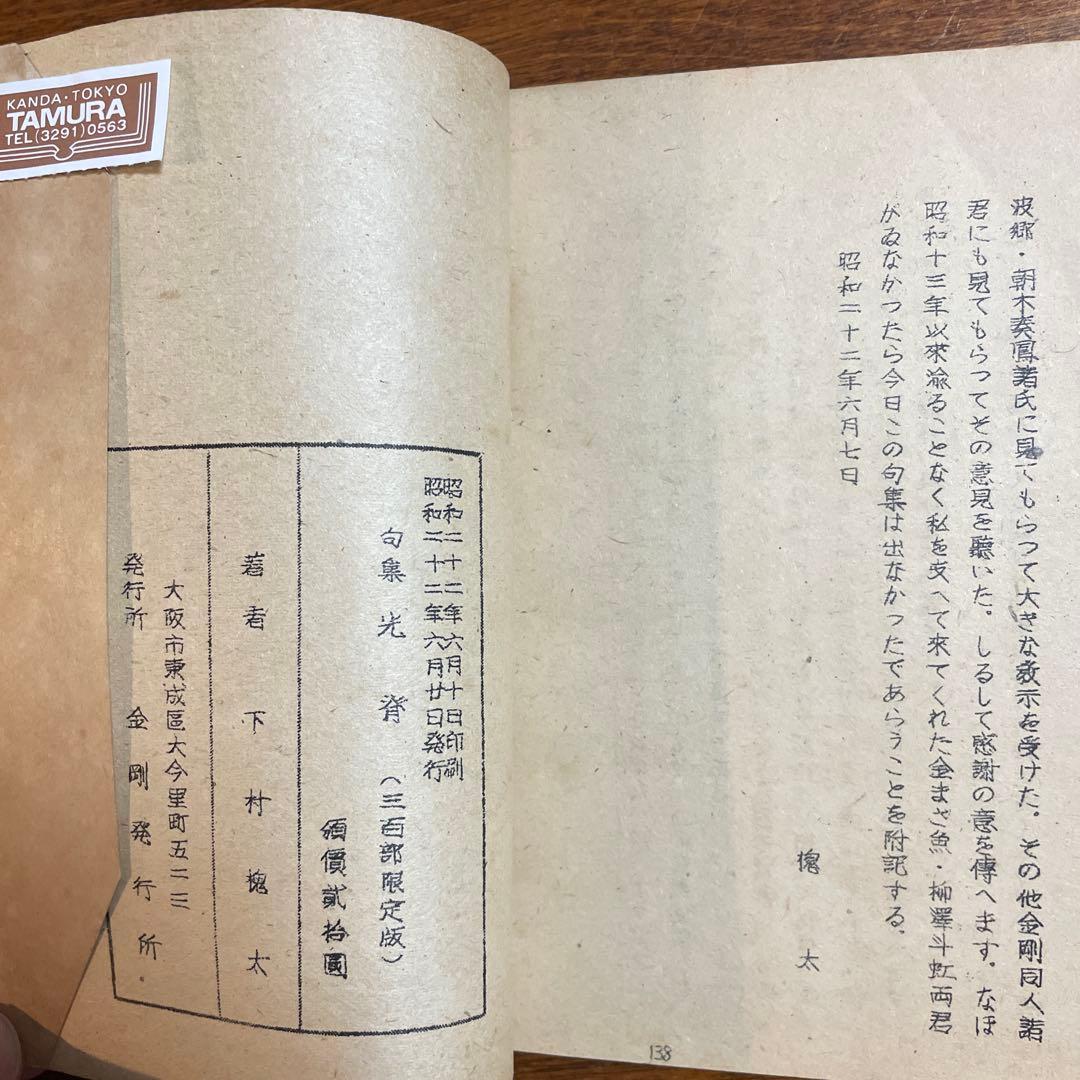 波郷・朝木奏鳳諸氏に見てもらつて大きな教示を受けた。その他金剛同人諸
君にも見てもらつてその意見を聽いた。しるして感謝の意を傳へます。なほ
昭和十三年以來渝ることなく私を支へて来てくれた金まさ魚・柳澤斗虹両君
がゐなかつたら今日この句集は出なかつたであらうことを附記する。
昭和二十二年六月七日
槐太
138
昭和二十二年六月十日印刷
昭和二十二年六月廿日発行
句集 光背 (三百部限定版)
頒價貳拾圓
著者 下村槐太
大阪市東成區大今里町五二三
発行所 金剛発行所
KANDA・TOKYO
TAMURA
TEL(3291)0563